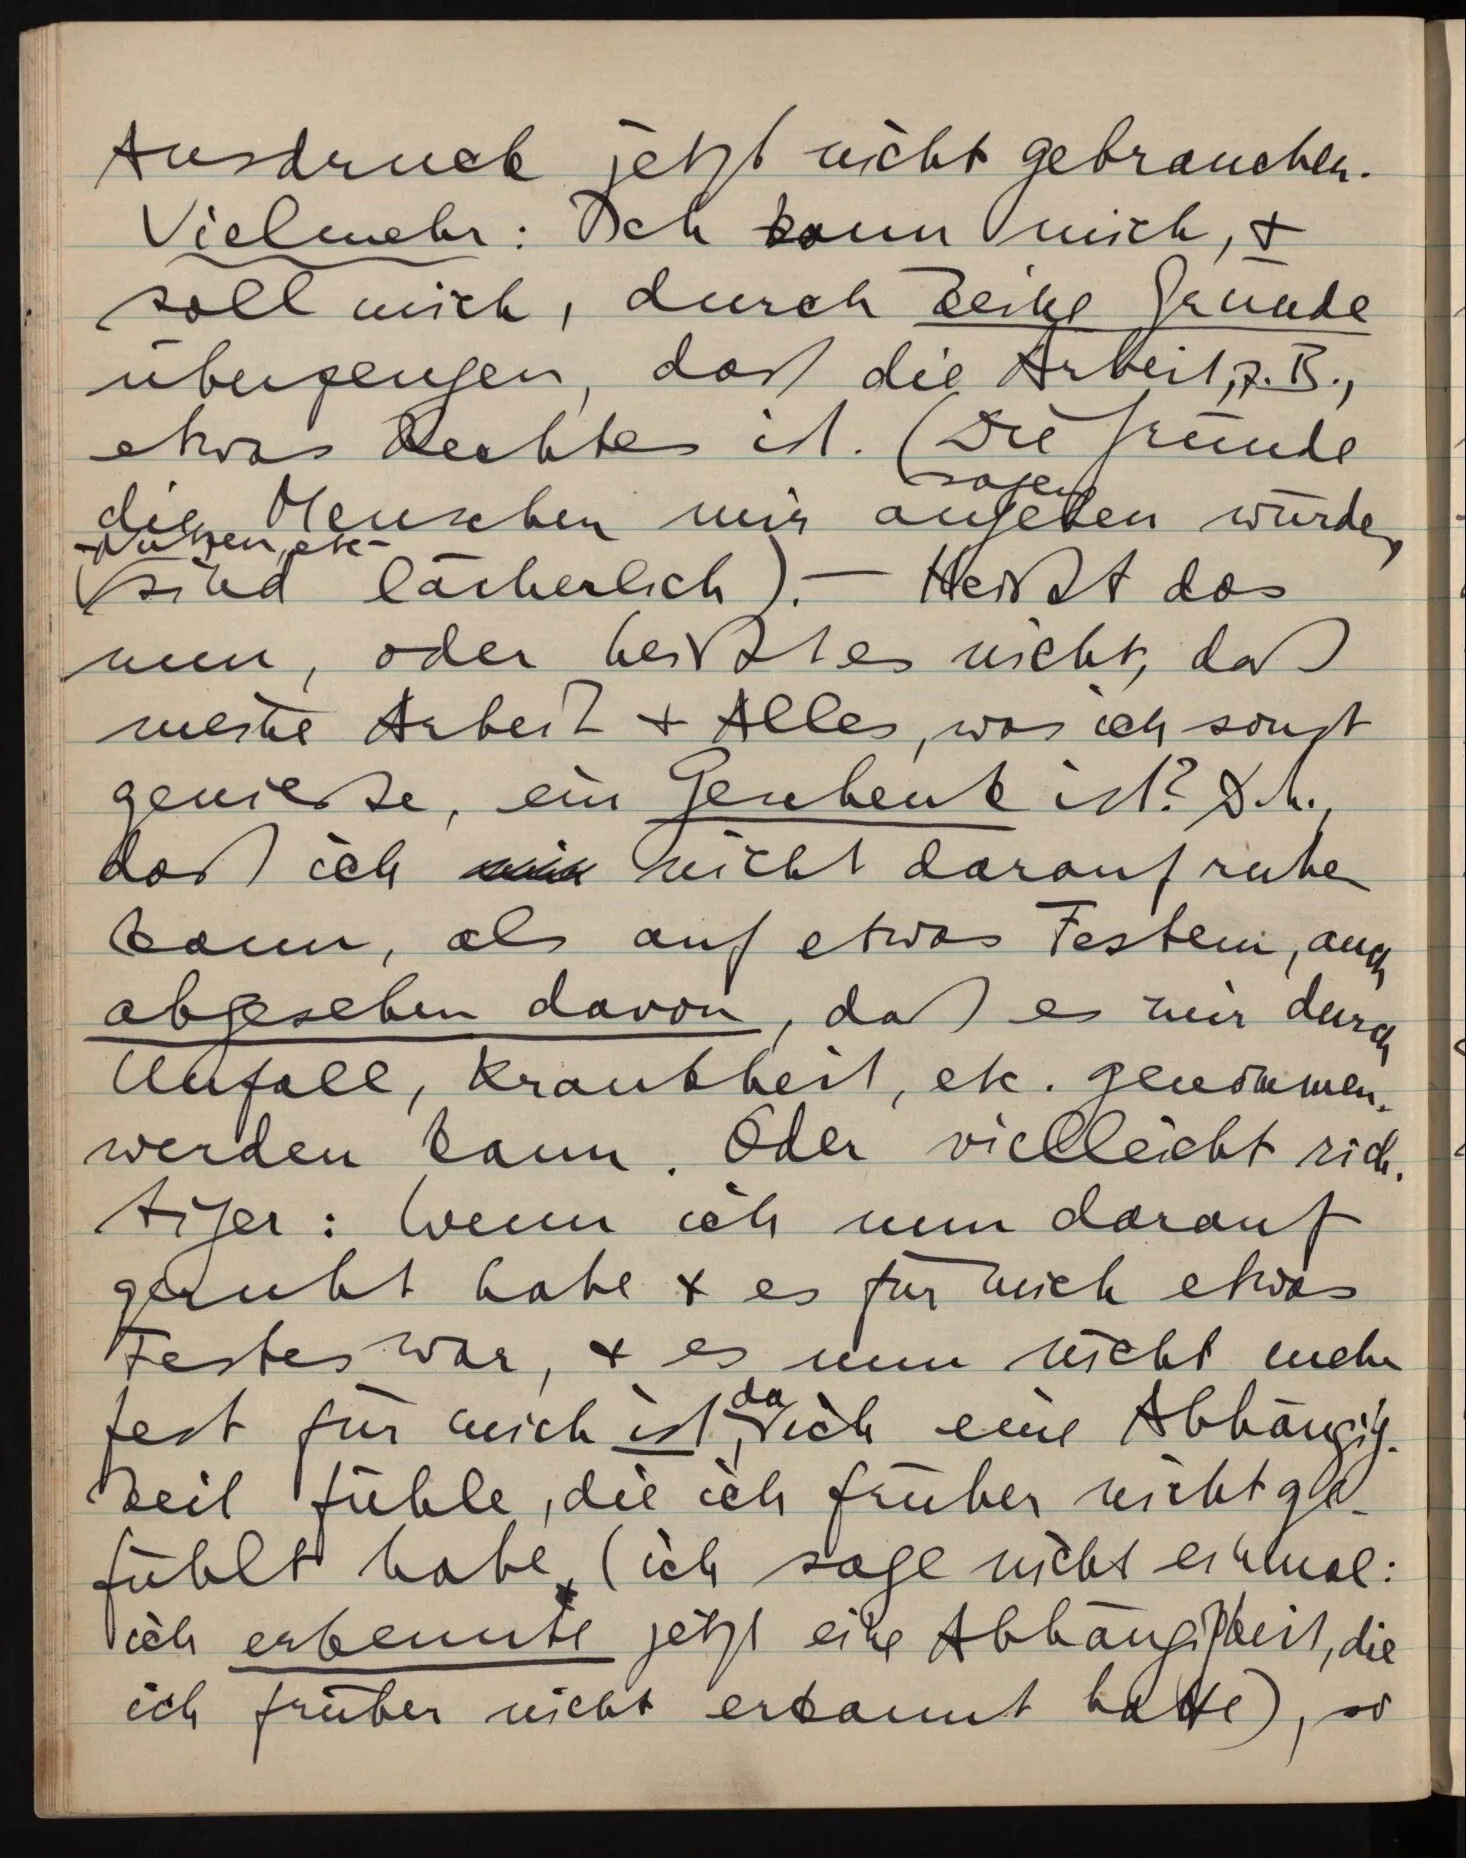 Ausdruck jetzt nicht gebrauchen.
Vielmehr: Ich kann mich, +
soll mich, durch keine Gründe
überzeugen, daß die Arbeit, z.B.,
etwas Rechtes ist. (Die Gründe
sagen
die Menschen mir angeben würden,
– Nutzen, etc –
sind lächerlich). — Heißt das
nun, oder heißt es nicht, daß
meine Arbeit + Alles, was ich sonst
genieße, ein Geschenk ist? D.h.,
daß ich nicht darauf ruhen
kann, als auf etwas Festem, auch
abgesehen davon, daß es mir durch
Unfall, Krankheit, etc. genommen
werden kann. Oder vielleicht rich-
tiger: Wenn ich nun darauf
geruht habe + es für mich etwas
Festes war, + es nun nicht mehr
da
fest für mich ist, ich eine Abhängig-
keit fühle, die ich früher nicht ge-
fühlt habe, (ich sage nicht einmal:
ich erkennte jetzt eine Abhängigkeit, die
ich früher nicht erkannt hatte), so